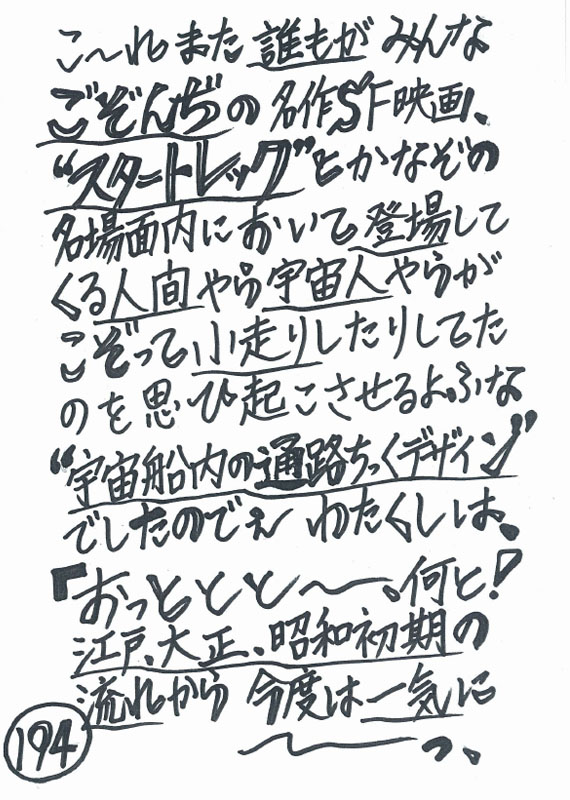 こ〜れまた誰もがみんな
ごぞんぢの名作SF映画、
“スタートレック”とかなぞの
名場面内において登場して
くる人間やら宇宙人やらが
こぞって小走りしたりしてた
のを思ひ起こさせるよふな
“宇宙船内の通路ちっくデザイン”
でしたのでぇ〜わたくしは、
『おっととと〜〜、何と!
江戸、大正、昭和初期の
流れから今度は一気に
〜〜っ、
194